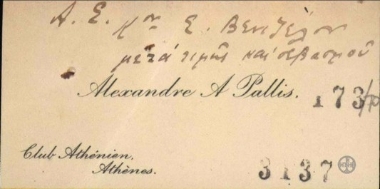 Α. Ε. κον Ε. Βενιζέλον
μετά τιμής και σεβασμού
Alexandre A Pallis.
173/
Club Athénien.
Athènes.
3137